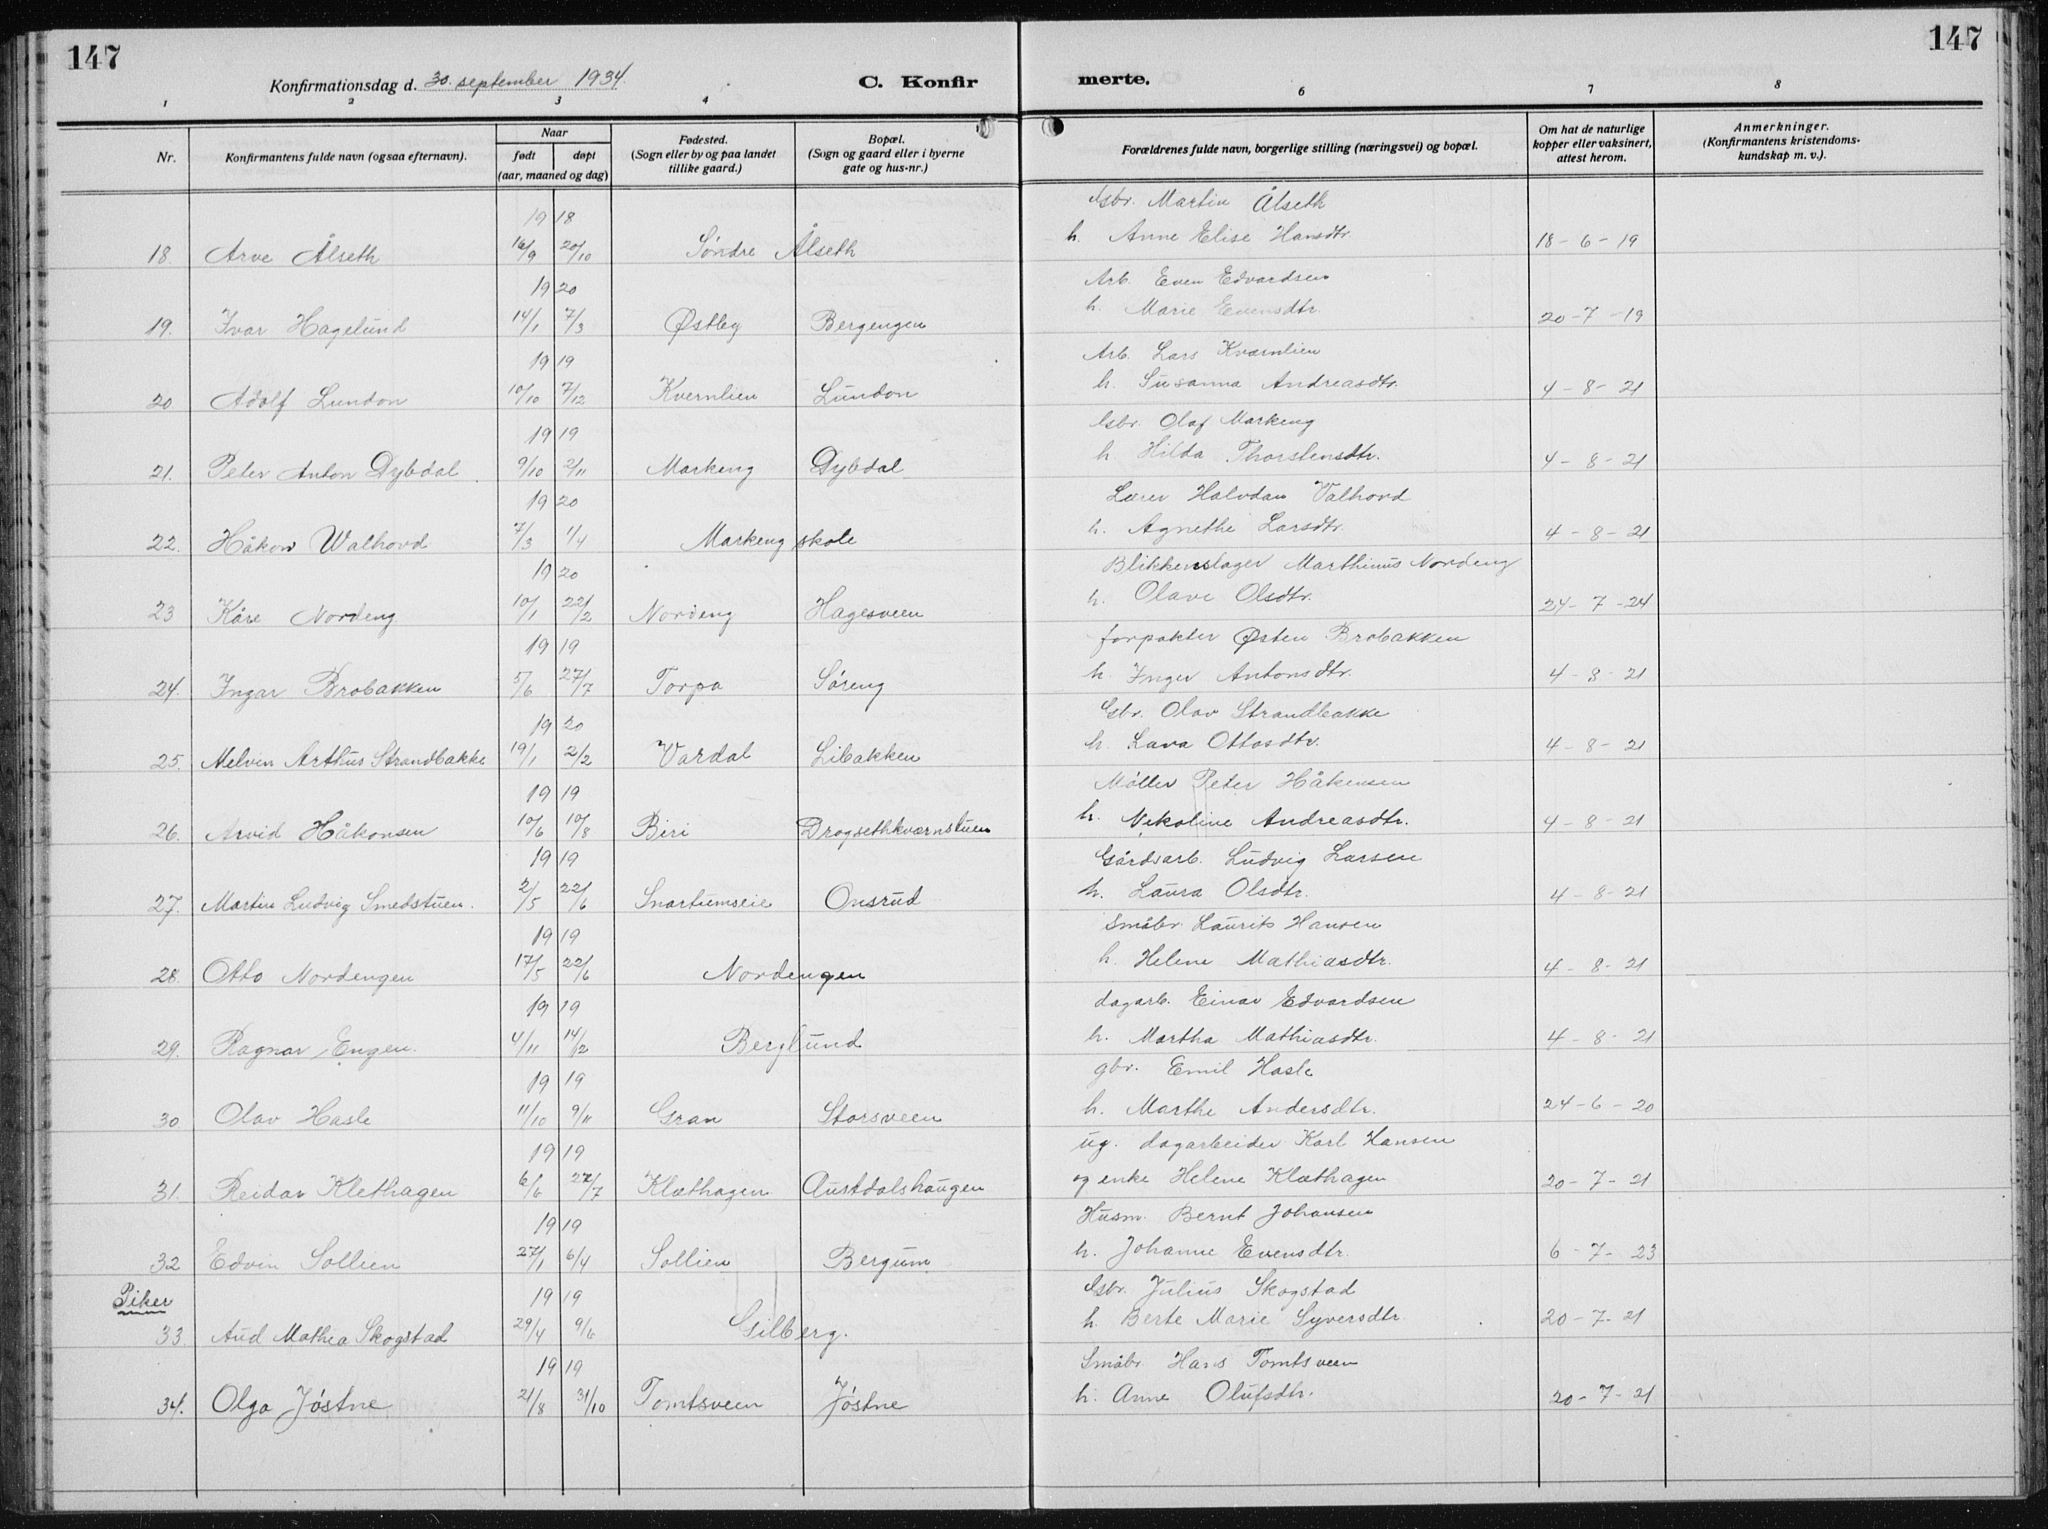 147
147
Konfirmationsdag d. 30. september 1934.
C. Konfir
merte.
1 2 3 4 6 7 8
Nr.
Konfirmantens fulde navn (ogsaa efternavn).
Naar
født døpt
(aar, maaned og dag)
Fødested.
(Sogn eller by og paa landet
tillike gaard.)
Bopæl.
(Sogn og gaard eller i byerne
gate og hus-nr.)
Forældrenes fulde navn, borgerlige stilling (næringsvei) og bopæl.
Om hat de naturlige
kopper eller vaksinert,
attest herom.
Anmerkninger.
(Konfirmantens kristendoms-
kundskap m. v.).
19 18 Gbr. Martin Ålseth
18. Arve Ålseth 16/9 20/10 Søndre Ålseth h. Anne Elise Hansdtr. 18-6-19
19 20 Arb. Even Edvardsen
19. Ivar Hagelund 14/1 7/3 Østby Bergengen h. Marie Evensdtr. 20-7-19
19 19 Arb. Lars Kvernlien
20 Adolf Lundon 10/10 7/12 Kvernlien Lundon h. Susanna Andreasdtr. 4-8-21
19 19 Gbr. Olaf Markeng
21. Peter Anton Dybdal 9/10 2/11 Markeng Dybdal h. Hilda Thorstensdtr. 4-8-21
19 20 Lærer Halvdan Valhovd
22. Håkon Walhovd 7/3 1/4 Markeng skole h. Agnethe Larsdtr. 4-8-21
19 20 Blikkenslager Marthinus Nordeng
23 Kåre Nordeng 10/1 22/2 Nordeng Hagesveen h. Olave Olsdtr. 24-7-24
19 19 forpakter Østen Brobakken
24. Ingar Brobakken 5/6 27/7 Torpa Søreng h. Inger Antonsdtr. 4-8-21
19 20 Gbr. Olav Strandbakke
25. Melvin Arthur Strandbakke 19/1 2/2 Vardal Libakken h. Lava Ottosdtr. 4-8-21
19 19 Møller Peter Håkensen
26. Arvid Håkonsen 10/6 10/8 Biri Drogsethkvernstuen h. Nikoline Andreasdtr. 4-8-21
19 19 Gårdsarb. Ludvig Larsen
27. Martin Ludvig Smedstuen. 2/5 22/6 Snartumseie Onsrud h. Laura Olsdtr. 4-8-21
19 19 Småbr. Laurits Hansen
28. Otto Nordengen 17/5 22/6 Nordengen h. Helene Mathiasdtr. 4-8-21
19 19 dagarb. Einar Edvardsen
29. Ragnar Engen. 4/11 14/2 Berglund h. Martha Mathiasdtr. 4-8-21
19 19 gbr. Emil Hasle
30 Olav Hasle 11/10 9/11 Gran Storsveen h. Marthe Andersdtr. 24-6-20
19 19 ug. dagarbeider Karl Hansen
31. Reidar Klethagen 6/6 27/7 Klæthagen Austdalshaugen og enke Helene Klæthagen 20-7-21
19 19 Husm. Bernt Johansen
32 Edvin Sollien 27/1 6/4 Sollien Bergum h. Johanne Evensdtr. 6-7-23
Piker 19 19 Gbr. Julius Skogstad
33. Aud Mathea Skogstad 29/4 9/6 Gilberg. h. Berte Marie Syversdtr. 20-7-21
19 19 Småbr Hans Tomtsveen
34. Olga Jøstne 21/8 31/10 Tomtsveen Jøstne h. Anne Olufsdtr. 20-7-21